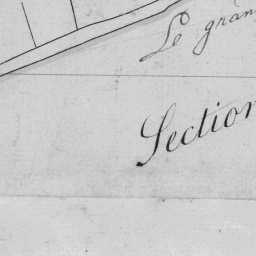 Le gran
Section